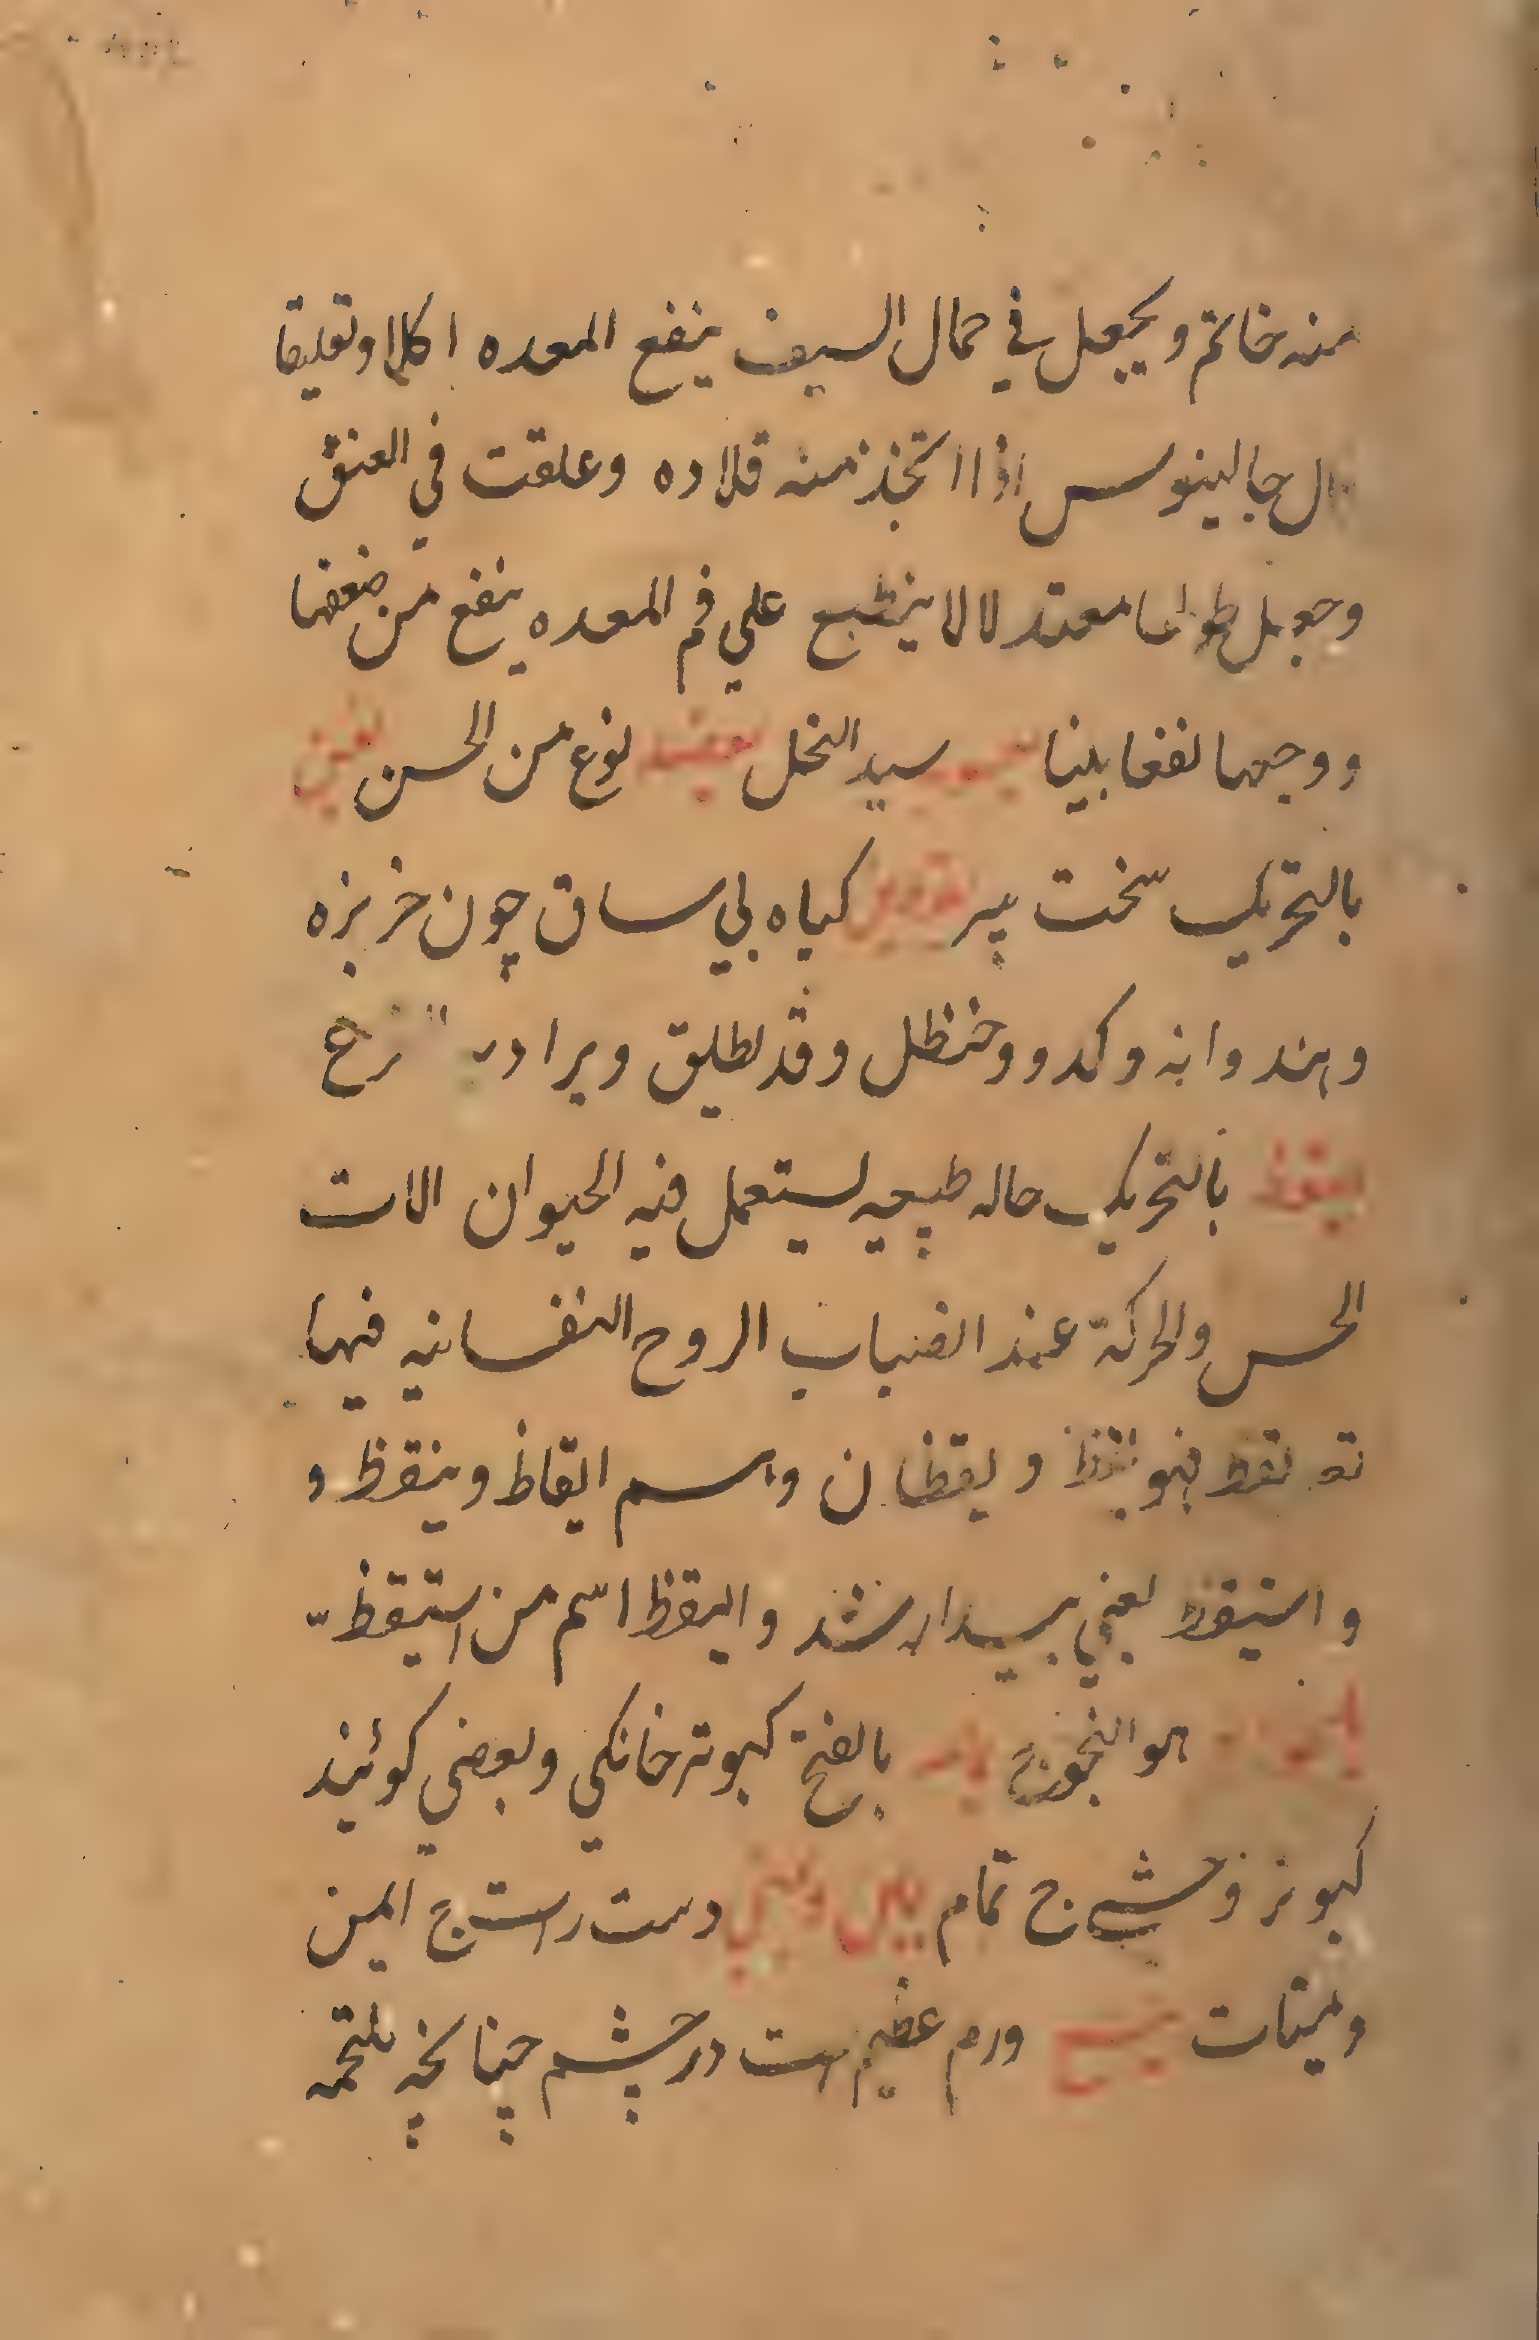 منه خاتم ويجعل في حمال السيف ينفع المعده اكلا وتعليقا
ال جالينوس اذا اتخذ منه قلاده وعلقت في العنق
وجعل طولها معتدلا لا ينطبع علي فم المعده ينفع من ضعفها
ووجعها نفعا بينا سيد النحل نوع من الحسن
بالتحريك سخت پير كياه بي ساق چون خربزه
وهندوانه وكدو وحنظل وقد يطلق ويراد
يقظ بالتحريك حاله طبيعيه يستعمل فيه الحيوان الات
الحس والحركة عند انصباب الروح النفسانيه فيها
يقظ فهو يقظ ويقظان واسم ايقاظ وينقظ و
واستيقظ يعني بيدار شد واليقظ اسم من استيقظ
هو بالفتح كبوتر خانكي وبعضي كوئيند
كبوتر وحشي ج تمام دست راست ج ايمن
ويمنات ورم عظيم است در چشم چنانچه ملتحمه